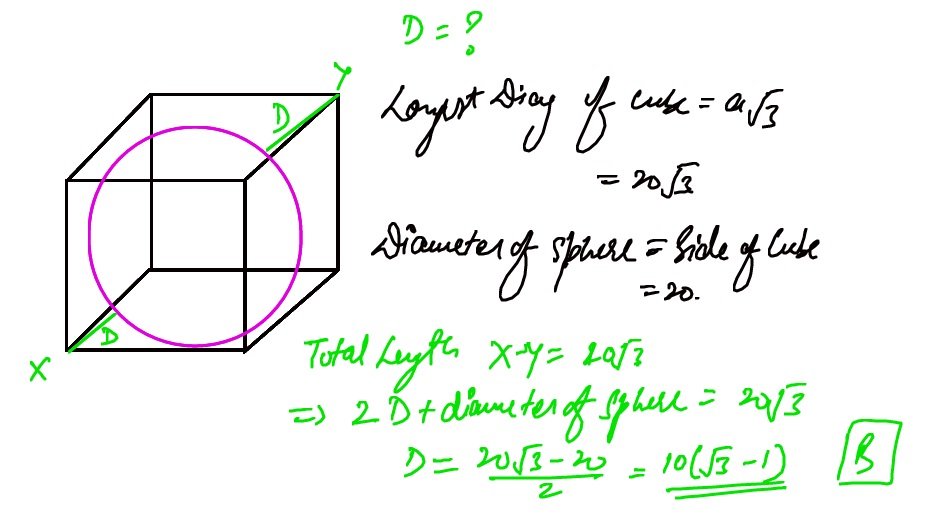 D = ?
Y
D
Longest Diag of cube = a√3
= 20√3
Diameter of sphere = Side of Cube
= 20.
D
X
Total Length X-Y = 20√3
=> 2D + diameter of sphere = 20√3
D = (20√3 - 20)/2 = 10(√3 - 1)
B